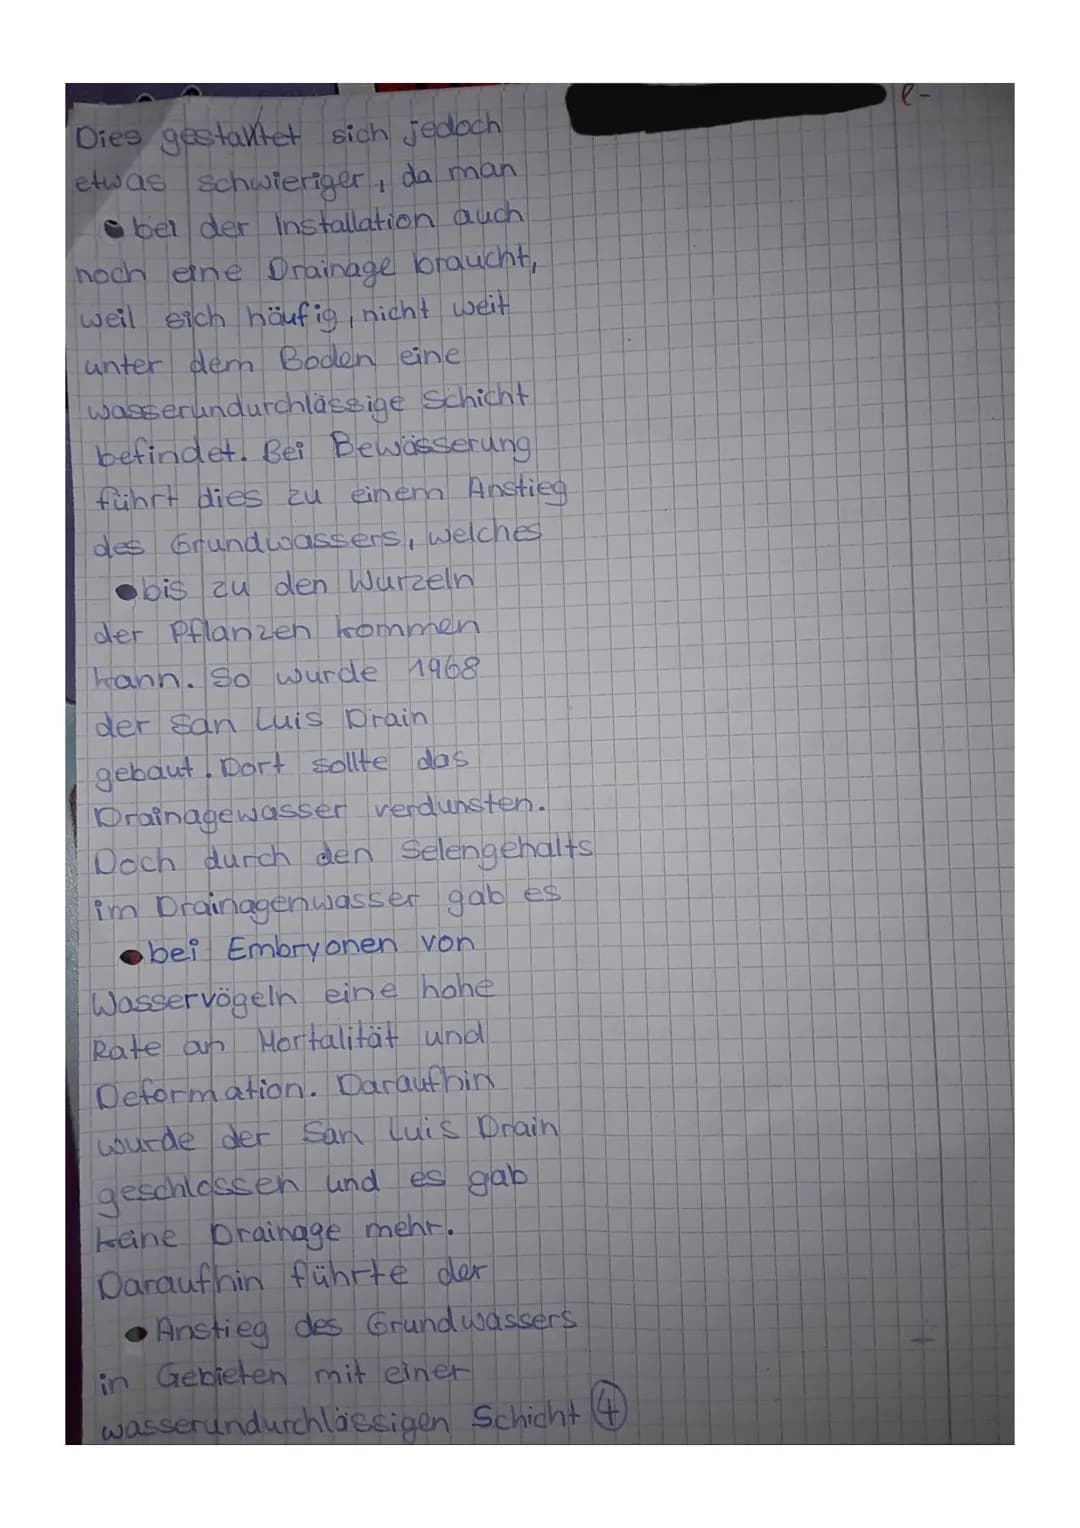 Dies gestaltet sich jedoch
etwas schwieriger, da man
• bei der Installation auch
noch eine Drainage braucht,
weil sich häufig, nicht weit
unter dem Boden eine
wasserundurchlässige Schicht
befindet. Bei Bewässerung
führt dies zu einem Anstieg
des Grundwassers, welches
• bis zu den Wurzeln
der Pflanzen kommen
kann. So wurde 1968
der San Luis Drain
gebaut. Dort sollte das
Drainagewasser verdunsten.
Doch durch den Selengehalts
im Drainagenwasser gab es
• bei Embryonen von
Wasservögeln eine hohe
Rate an Mortalität und
Deformation. Daraufhin
wurde der San Luis Drain
geschlossen und es gab
keine Drainage mehr.
Daraufhin führte der
• Anstieg des Grundwassers
in Gebieten mit einer
wasserundurchlässigen Schicht 4